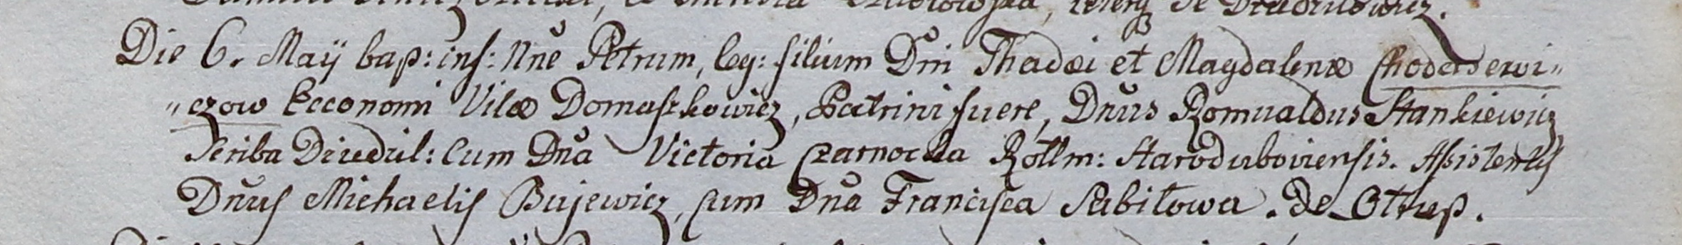 Die 6. Maÿ bap: inf: Nne Petrum, leg: filium Dni Thadæi et Magdalenæ Chodersewi=
=czowEcconomi Vilæ Domaszkowicz, Patrini fuere, Dnus Romualdus Stankiewicz
Scriba Dziedzil: Cum Dna Victoria Czarnocka Rottm: Staroduboviensis. Assistentes
Dnus Michaelis Bujewicz, cum Dna Francisca Sabilowa. de Otrup.